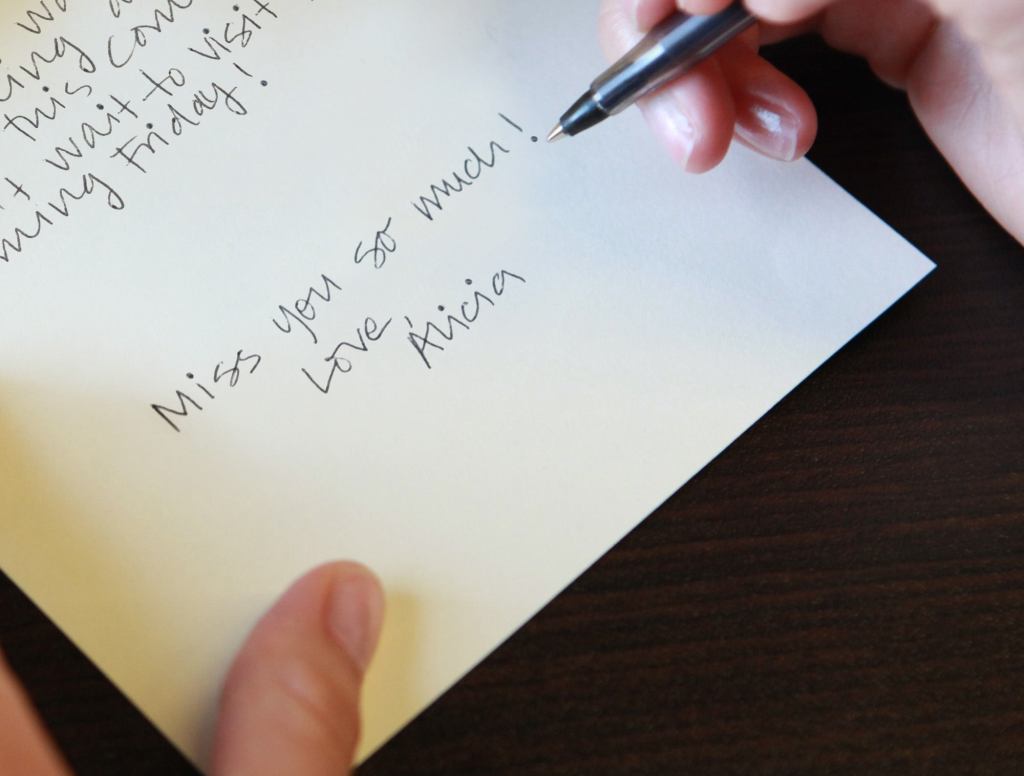 this com
't wait to visit
ming Friday!
Miss you so much!
Love,
Alicia